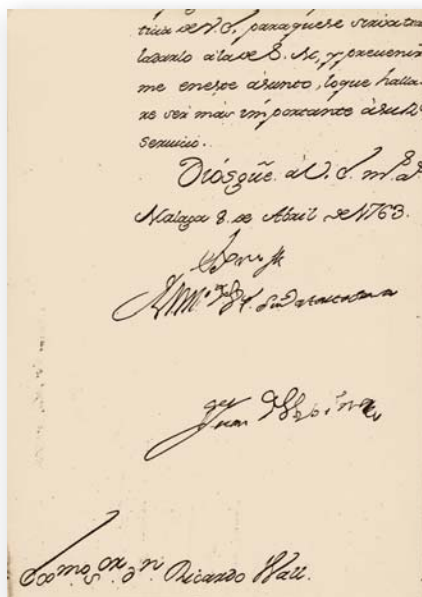 ticia de V. S., para que se sirva tras
ladarlo à la de S. M., y prevenir
me en este asunto, lo que halla
re ser mas importante à su Rl
servicio.
Dios gūe. à V. S. ms. as.
Malaga 8. de Abril de 1763.
Juan
Exmo. Sor. Dn. Ricardo Wall.